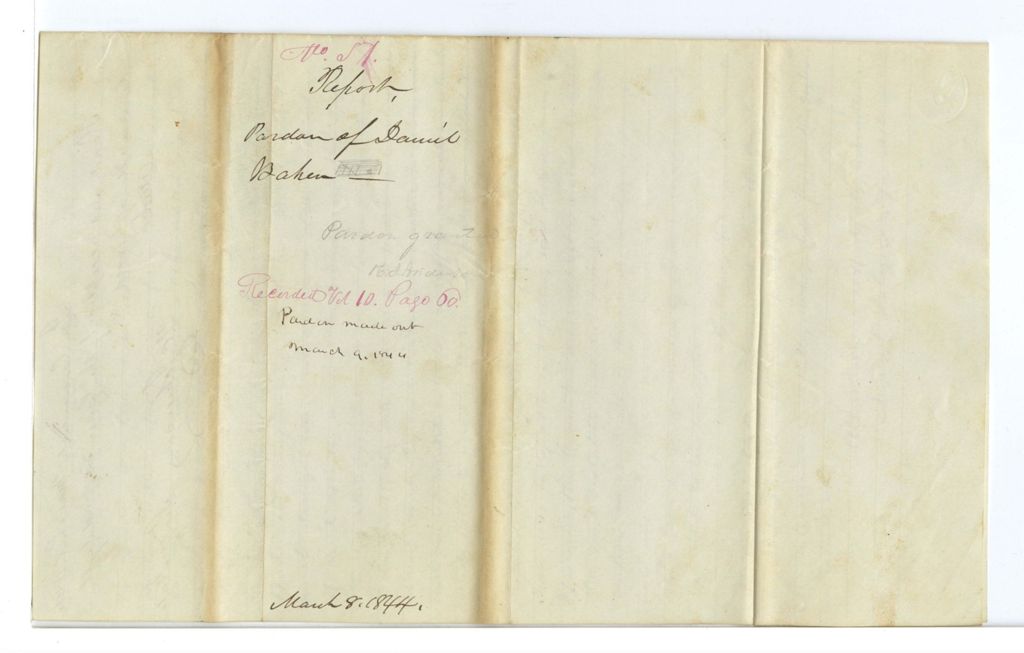 No. 57.
Report,
Pardon of Daniel
Baker
Pardon granted
Recorded Vol 10. Page 60.
Pardon made out
March 9. 1844
March 8. 1844.